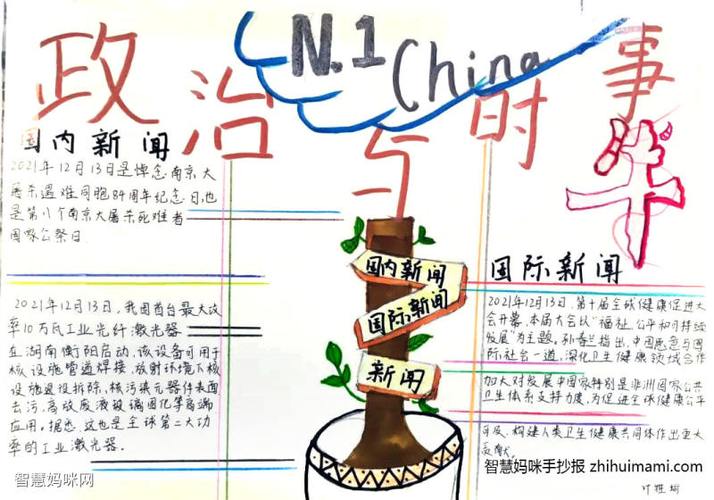 政治与时事
N.1
China
华
国内新闻
2021年12月13日是悼念南京大
屠杀遇难同胞84周年纪念日,也
是第八个南京大屠杀死难者
国家公祭日
2021年12月13日,我国首台最大功
率10万瓦工业光纤激光器
在湖南衡阳启动,该设备可用于
核设施管道焊接,放射环境下核
设施退役拆除,核污染元器件表面
去污,高放废液玻璃固化等高端
应用。据悉,这也是全球第二大功
率的工业激光器.
国内新闻
国际新闻
新闻
国际新闻
2021年12月13日,第十届全球健康促进大
会开幕,本届大会以“福祉,公平和可持续
发展”为主题。孙春兰指出,中国愿意与国
际社会一道,深化卫生健康领域合作
加大对发展中国家特别是非洲国家公共
卫生体系支持力度,为促进全球健康公平
可及,构建人类卫生健康共同体作出重大
贡献.
智慧妈咪网
智慧妈咪手抄报 zhihuimami.com